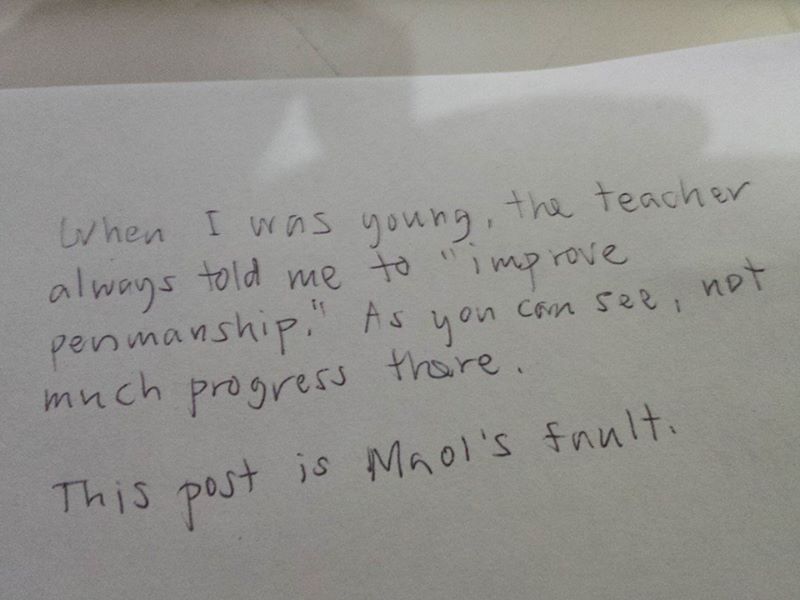 When I was young, the teacher
always told me to "improve
penmanship." As you can see, not
much progress there.
This post is Maol's fault.